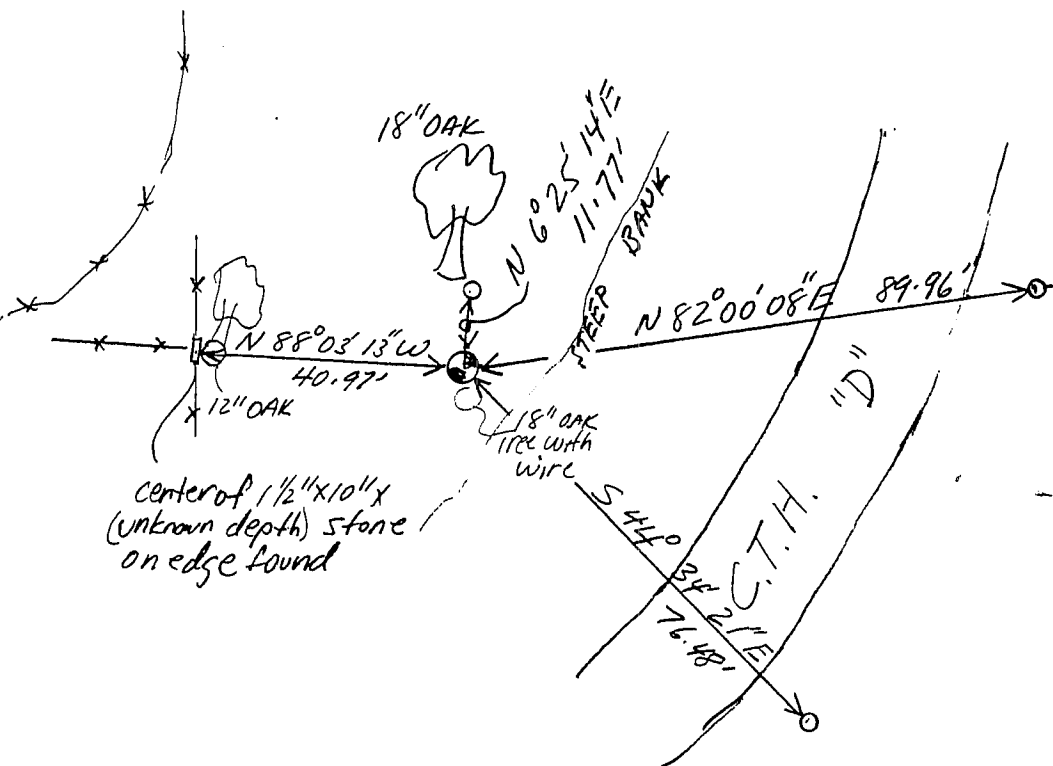 18" OAK
N 6°25'14"E
11.77'
STEEP BANK
N 82°00'08"E 89.96'
N 88°03'13"W
40.97'
12" OAK
18" OAK
Tree with
wire
"D"
C.T.H.
center of 1 1/2"X10"X
(unknown depth) stone
on edge found
S 44° 34' 21"E
76.48'